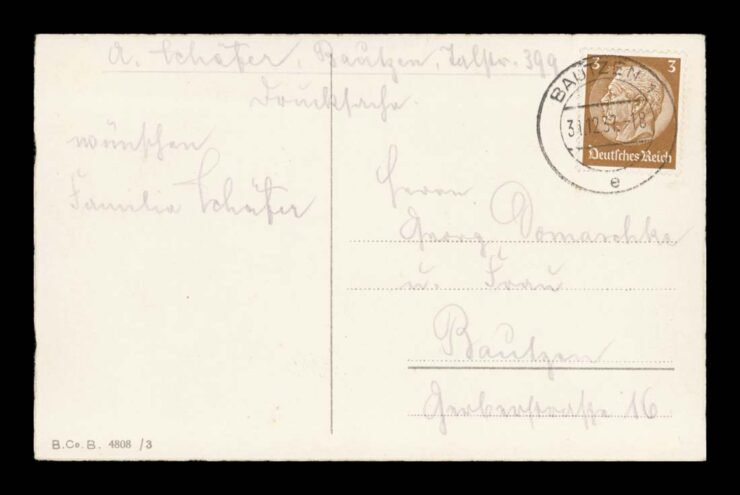 A. Schäfer, Bautzen, Talstr. 399
Drucksache.
wünschen
Familie Schäfer
3 3
Deutsches Reich
BAUTZEN 1
31.12.37.-18
e
Herrn
Georg Domaschke
u. Frau
Bautzen
Gerberstraße 16
B.Co.B. 4808 /3